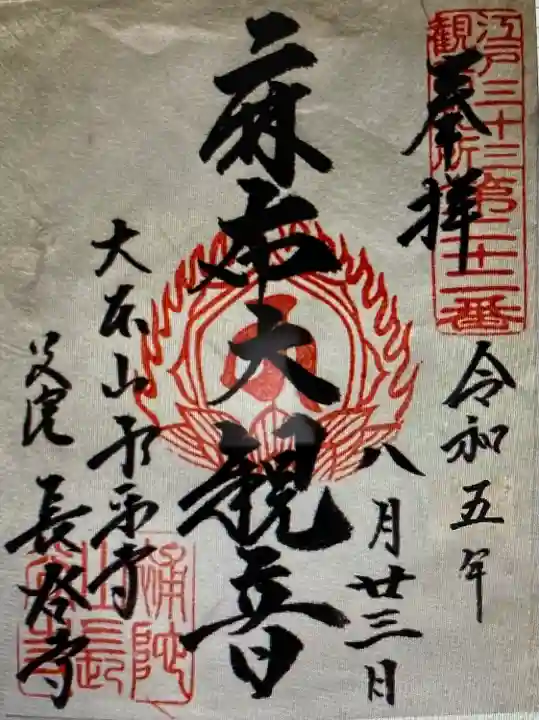 江戸三十三
観音札所
第二十二番
奉拝
令和五年
八月廿三日
麻布大観音
大本山永平寺
別院 長谷寺